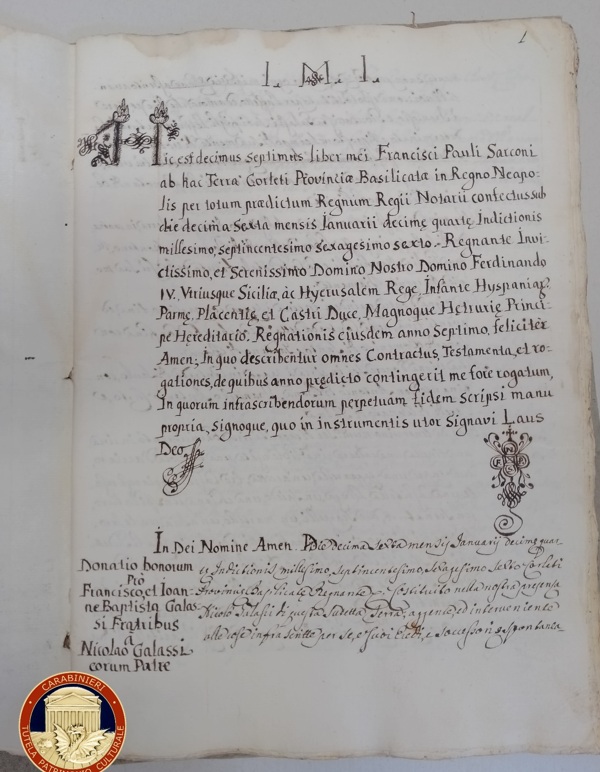 1
I. M. I.
Hic est decimus septimus liber mei Francisci Pauli Sarconi
ab hac Terra Corleti Provinciæ Basilicatæ in Regno Neapo-
lis per totum prædictum Regnum Regii Notarii confectus sub
die decima sexta mensis Ianuarii decimę quartę Indictionis
millesimo, septincentesimo sexagesimo sexto.- Regnante Invi-
ctissimo, et Serenissimo Domino Nostro Domino Ferdinando
IV. Vtriusque Siciliæ, ac Hyerusalem Rege, Infante Hyspaniar,
Parmę, Placentię, et Castri Duce, Magnoque Hetrurię Princi-
pe Hereditario. Regnationis ejusdem anno Septimo, feliciter
Amen; In quo describentur omnes Contractus, Testamenta, et ro-
gationes, de quibus anno prędicto contingerit me fore rogatum,
In quorum infrascribendorum perpetuam fidem scripsi manu
propria, signoque, quo in instrumentis utor signavi Laus
Deo
In Dei Nomine Amen. Die decima sexta mensis Ianuarij decimę quar-
tę Indictionis millesimo, septincentesimo, sexagesimo sexto Corleti
Provincię Basilicatę Regnante Costituito nella nostra presenza
Nicolò Galassi di questa sudetta Terra, aggente ed interveniente
alle cose infrascritte per se, e suoi Eredi, e successori, e spontanea-
Donatio bonorum
Pro
Francisco, et Ioan-
ne Baptista Galas-
si Fratribus
a
Nicolao Galassi
eorum Patre
CARABINIERI
TUTELA PATRIMONIO CULTURALE